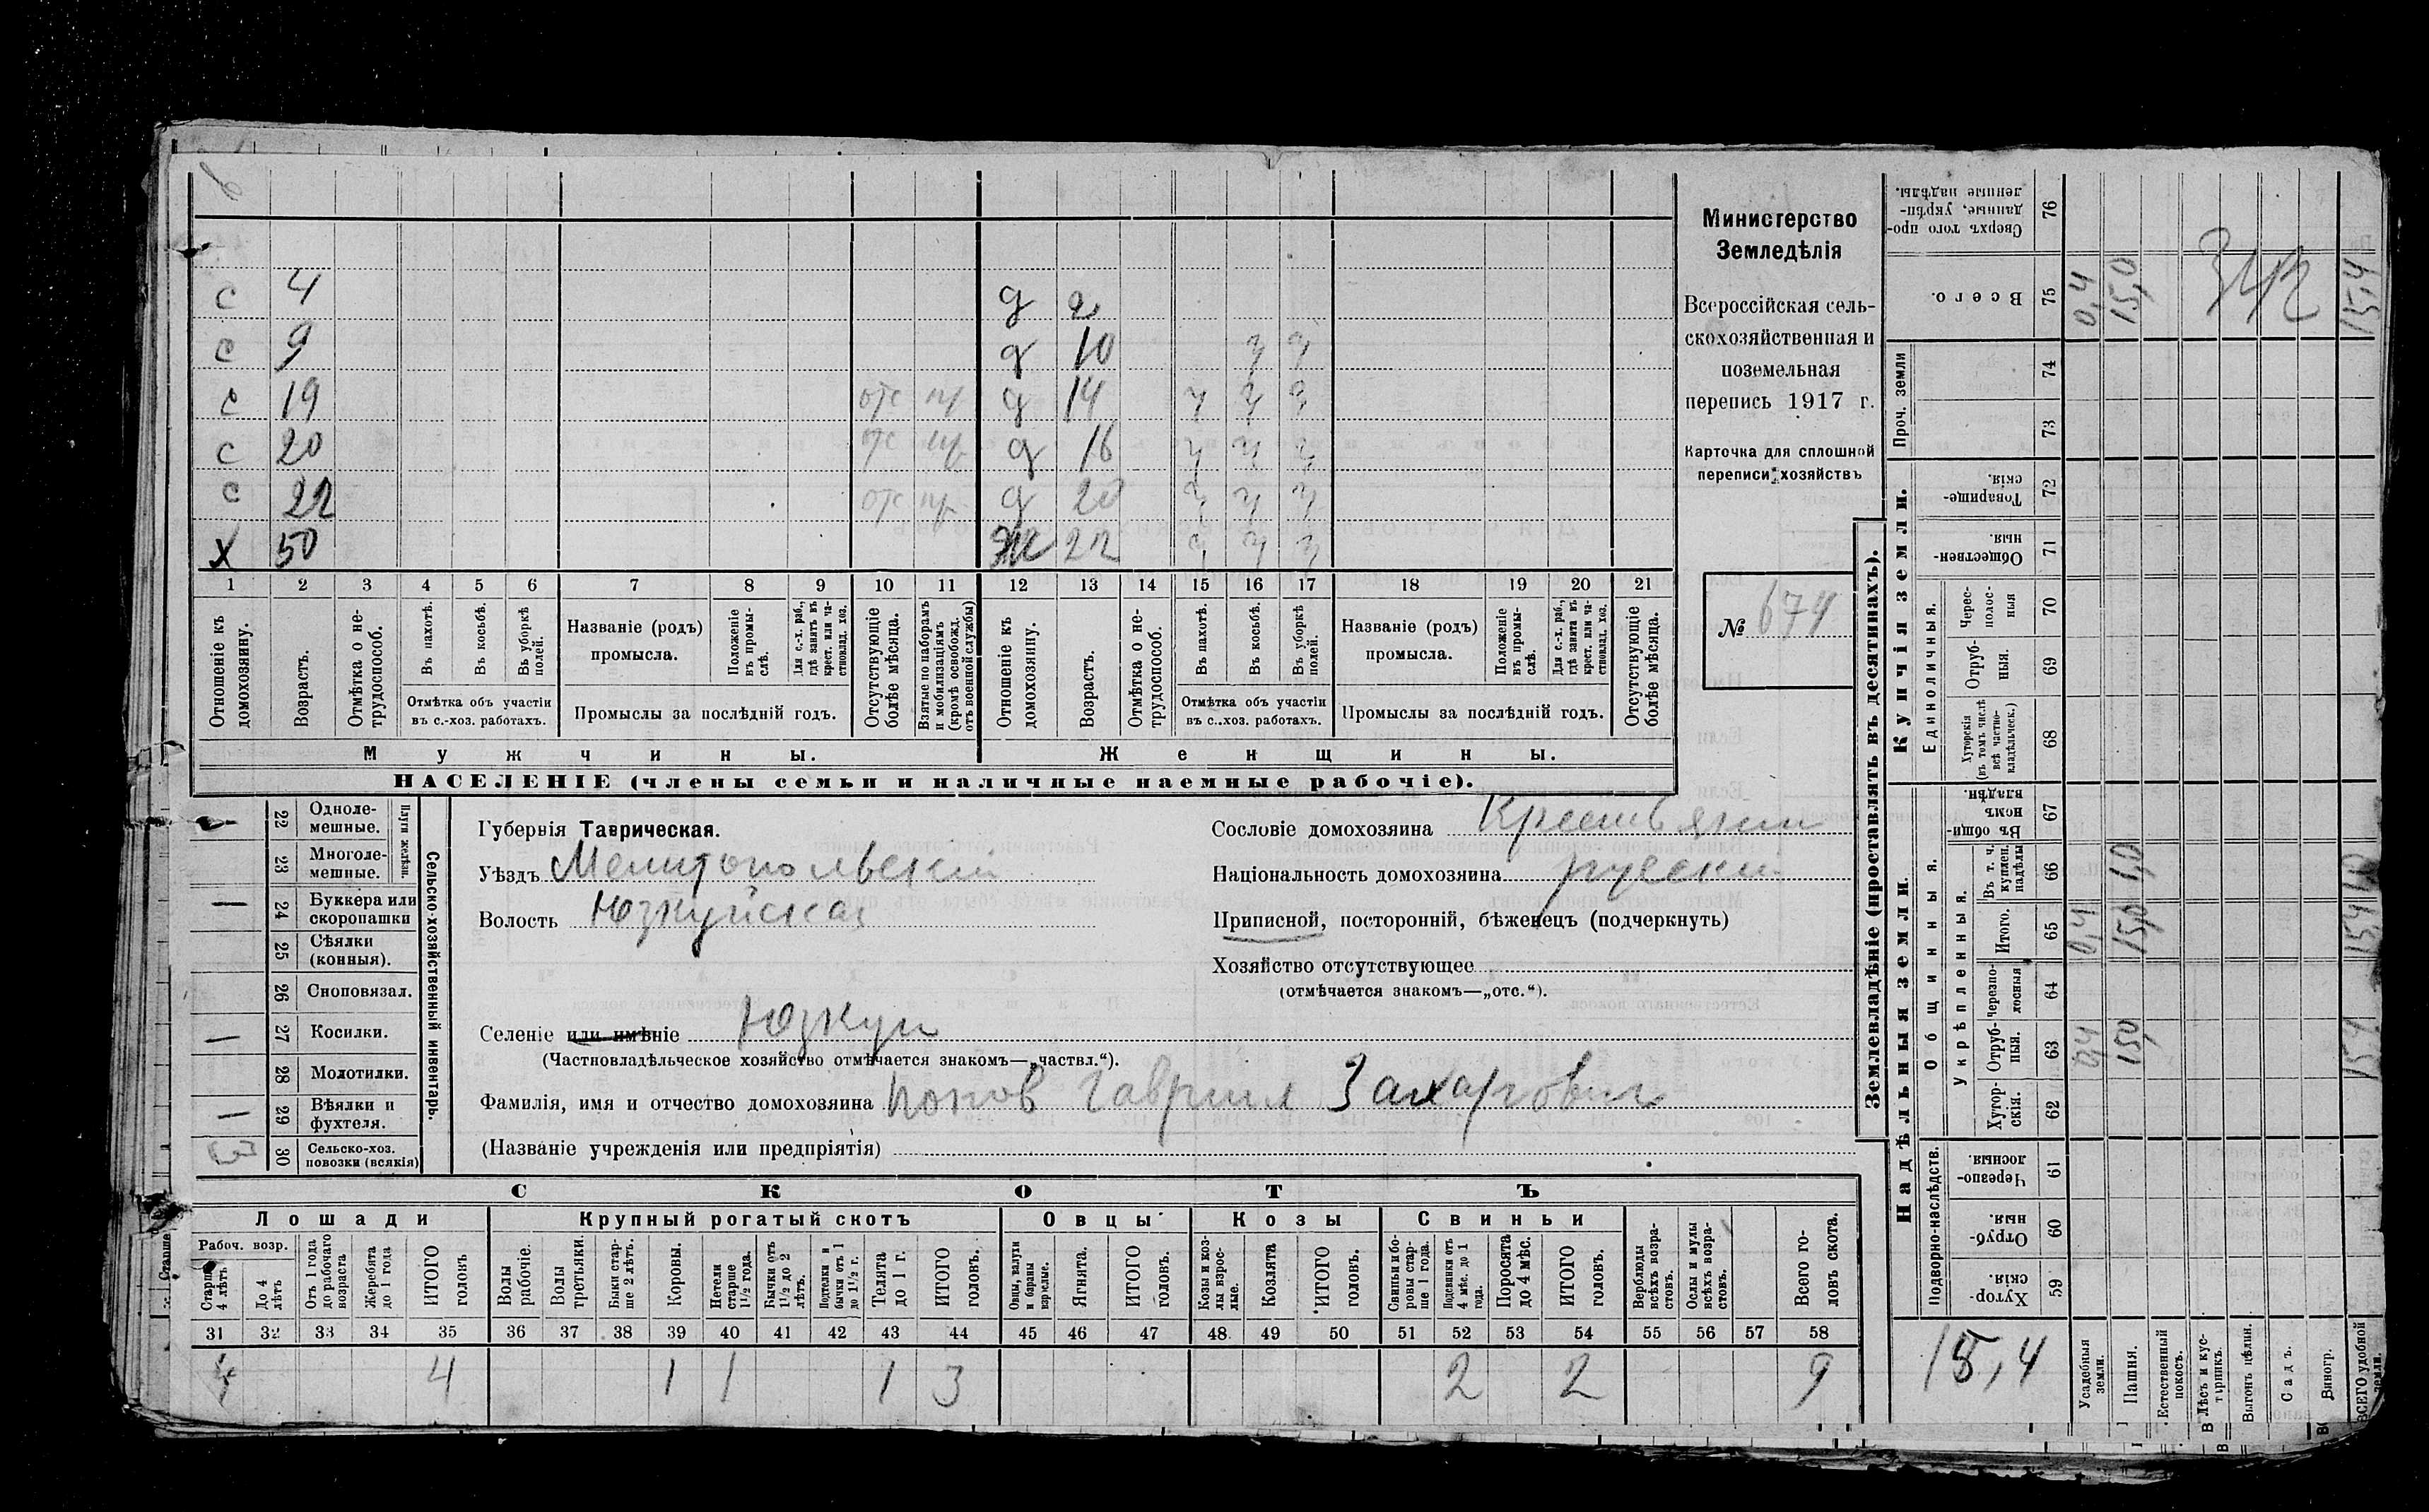 с 4 д 2
с 9 д 10 з з
с 19 отс пр д 14 з з з
с 20 отс пр д 16 з з з
с 22 отс пр д 20 з з з
х 50 ж 22 з з з
1 2 3 4 5 6 7 8 9 10 11 12 13 14 15 16 17 18 19 20 21
Отношеніе къ домохозяину.
Возрастъ.
Отмѣтка о нетрудоспособ.
Въ пахотѣ.
Въ косьбѣ.
Въ уборкѣ полей.
Отмѣтка объ участіи
въ с.-хоз. работахъ.
Названіе (родъ)
промысла.
Положеніе въ промыслѣ.
Для с.-х. раб., гдѣ занятъ въ крест. или частновлад. хоз.
Промыслы за послѣдній годъ.
Отсутствующіе болѣе мѣсяца.
Взятые по наборамъ и мобилизаціямъ (кромѣ освобожд. отъ военной службы)
Отношеніе къ домохозяину.
Возрастъ.
Отмѣтка о нетрудоспособ.
Въ пахотѣ.
Въ косьбѣ.
Въ уборкѣ полей.
Отмѣтка объ участіи
въ с..хоз. работахъ.
Названіе (родъ)
промысла.
Положеніе въ промыслѣ.
Для с.-х. раб., гдѣ занята въ крест. или частновлад. хоз.
Промыслы за послѣдній годъ.
Отсутствующіе болѣе мѣсяца.
Мужчины.
Женщины.
НАСЕЛЕНІЕ (члены семьи и наличные наемные рабочіе).
Министерство
Земледѣлія
Всероссійская сель-
скохозяйственная и
поземельная
перепись 1917 г.
Карточка для сплошной
переписи хозяйствъ
№ 674
22 Одноле-
мешные.
23 Многоле-
мешные.
Плуги желѣзн.
24 Буккера или
скоропашки
25 Сѣялки
(конныя).
26 Сноповязал.
27 Косилки.
28 Молотилки.
29 Вѣялки и
фухтеля.
30 Сельско-хоз.
повозки (всякія)
Сельско-хозяйственный инвентарь.
Губернія Таврическая.
Уѣздъ Мелитопольскій
Волость Юзкуйская
Сословіе домохозяина Крестьянин
Національность домохозяина русский
Приписной, посторонній, бѣженецъ (подчеркнуть)
Хозяйство отсутствующее
(отмѣчается знакомъ—„отс.“).
Селеніе или имѣніе Юзкуи
(Частновладѣльческое хозяйство отмѣчается знакомъ—„частвл.“).
Фамилія, имя и отчество домохозяина Попов Гавриил Захарович
(Названіе учрежденія или предпріятія)
СКОТЪ
Лошади
Крупный рогатый скотъ
Овцы
Козы
Свиньи
Рабоч. возр.
Старше 4 лѣтъ
До 4 лѣтъ
Отъ 1 года до рабочаго возраста
Жеребята до 1 года
ИТОГО головъ
Волы рабочіе.
Волы третьяки.
Быки старше 2 лѣтъ.
Коровы.
Нетели старше 1½ года.
Бычки отъ 1½ до 2 лѣтъ.
Подтелки и бычки отъ 1 до 1½ г.
Телята до 1 г.
ИТОГО головъ.
Овцы, валухи и бараны взрослые.
Ягнята.
ИТОГО головъ.
Козы и козлы взрослые.
Козлята
ИТОГО головъ.
Свиньи и боровы старше 1 года.
Подсвинки отъ 4 мѣс. до 1 года.
Поросята до 4 мѣс.
ИТОГО головъ.
Верблюды всѣхъ возрастовъ.
Ослы и мулы всѣхъ возрастовъ.
Всего головъ скота.
31 32 33 34 35 36 37 38 39 40 41 42 43 44 45 46 47 48 49 50 51 52 53 54 55 56 57 58
4 4 1 1 1 3 2 2 9
Землевладѣніе (проставлять въ десятинахъ).
Купчія земли.
Надѣльныя земли.
Сверхъ того проданные, укрѣпленные надѣлы. 76
Всего. 75 0,4 15,0 15,4
342
Проч. земли 74
73
Товарищескія. 72
Общественныя 71
Единоличныя.
Чересполосныя 70
Отрубныя. 69
Хуторскія (въ томъ числѣ всѣ частновладѣльческ.) 68
Общинныя.
Въ общиномъ владѣн. 67
Укрѣпленныя.
Въ т. ч. куплен. надѣлы 66 1,0
Итого. 65 0,4 15,0 15,4
черезполосныя 64
Отрубныя. 63 0,4 15,0 15,4
Хуторскія. 62
Подворно-наслѣдств.
Черезполосныя. 61
Отрубныя. 60
Хуторскія. 59
15,4
Усадебныя земли.
Пашня.
Естественный покосъ.
Лѣсъ и кустарникъ.
Выгонъ цѣлин.
Садъ.
Виногр.
ВСЕГО удобной земли.